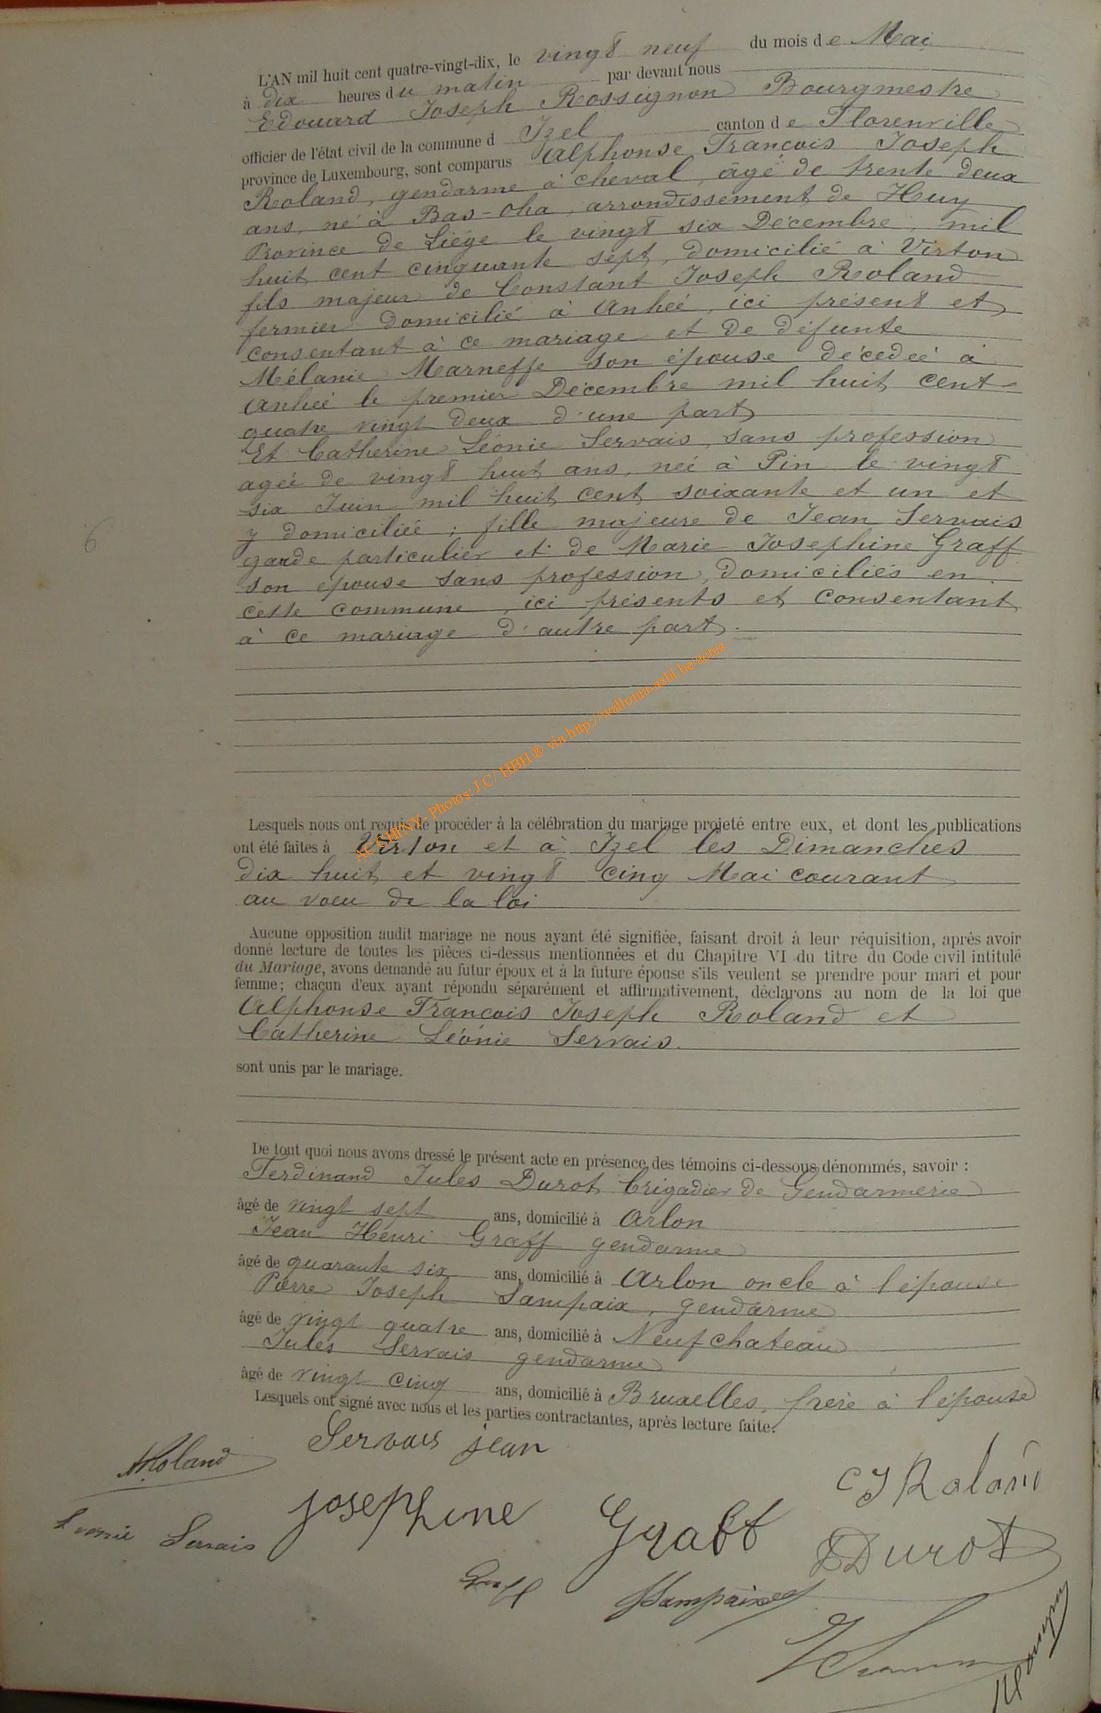 L'AN mil huit cent quatre-vingt-dix, le vingt neuf du mois de Mai
à dix heures du matin par devant nous
Edouard Joseph Rossignon Bourgmestre
officier de l'état civil de la commune d Izel canton de Florenville
province de Luxembourg, sont comparus Alphonse François Joseph
Roland, gendarme à cheval, âgé de trente deux
ans, né à Bas-Oha, arrondissement de Huy
Province de Liége le vingt six Décembre, mil
huit cent cinquante sept, domicilié à Virton
fils majeur de Constant Joseph Roland
fermier domicilié à Anhée, ici présent et
consentant à ce mariage et de défunte
Mélanie Marneffe son épouse décedeé à
Anheé le premier Décembre mil huit cent
quatre vingt deux d'une part
Et Catherine Léonie Servais, sans profession
ageé de vingt huit ans, neé à Pin le vingt
six Juin mil huit cent soixante et un et
y domiciliée ; fille majeure de Jean Servais
garde particulier et de Marie Josephine Graff
son épouse sans profession, domiciliés en
cette commune, ici présents et consentant
à ce mariage d'autre part.
6
ACTHENY- Photos J C/ HBH® via http://wallonia-asbl.be/actes
Lesquels nous ont requis de procéder à la célébration du mariage projeté entre eux, et dont les publications
ont été faites à Virton et à Izel les Dimanches
dix huit et vingt cinq Mai courant
au voeu de la loi
Aucune opposition audit mariage ne nous ayant été signifiée, faisant droit à leur réquisition, après avoir
donné lecture de toutes les pièces ci-dessus mentionnées et du Chapitre VI du titre du Code civil intitulé
du Mariage, avons demandé au futur époux et à la future épouse s'ils veulent se prendre pour mari et pour
femme; chacun d'eux ayant répondu séparément et affirmativement, déclarons au nom de la loi que
Alphonse François Joseph Roland et
Catherine Léonie Servais.
sont unis par le mariage.
De tout quoi nous avons dressé le présent acte en présence des témoins ci-dessous dénommés, savoir :
Ferdinand Jules Durot brigadier de Gendarmerie
âgé de vingt sept ans, domicilié à Arlon
Jean Henri Graff gendarme
âgé de quarante six ans, domicilié à Arlon oncle à l'épouse
Pierre Joseph Sampaix, gendarme
âgé de vingt quatre ans, domicilié à Neufchateau
Jules Servais gendarme
âgé de vingt cinq ans, domicilié à Bruxelles, frère à l'épouse
Lesquels ont signé avec nous et les parties contractantes, après lecture faite.
Servais jean
ARoland
C J Roland
josephine Graff
Léonie Servais
Durot
Graff
Sampaix